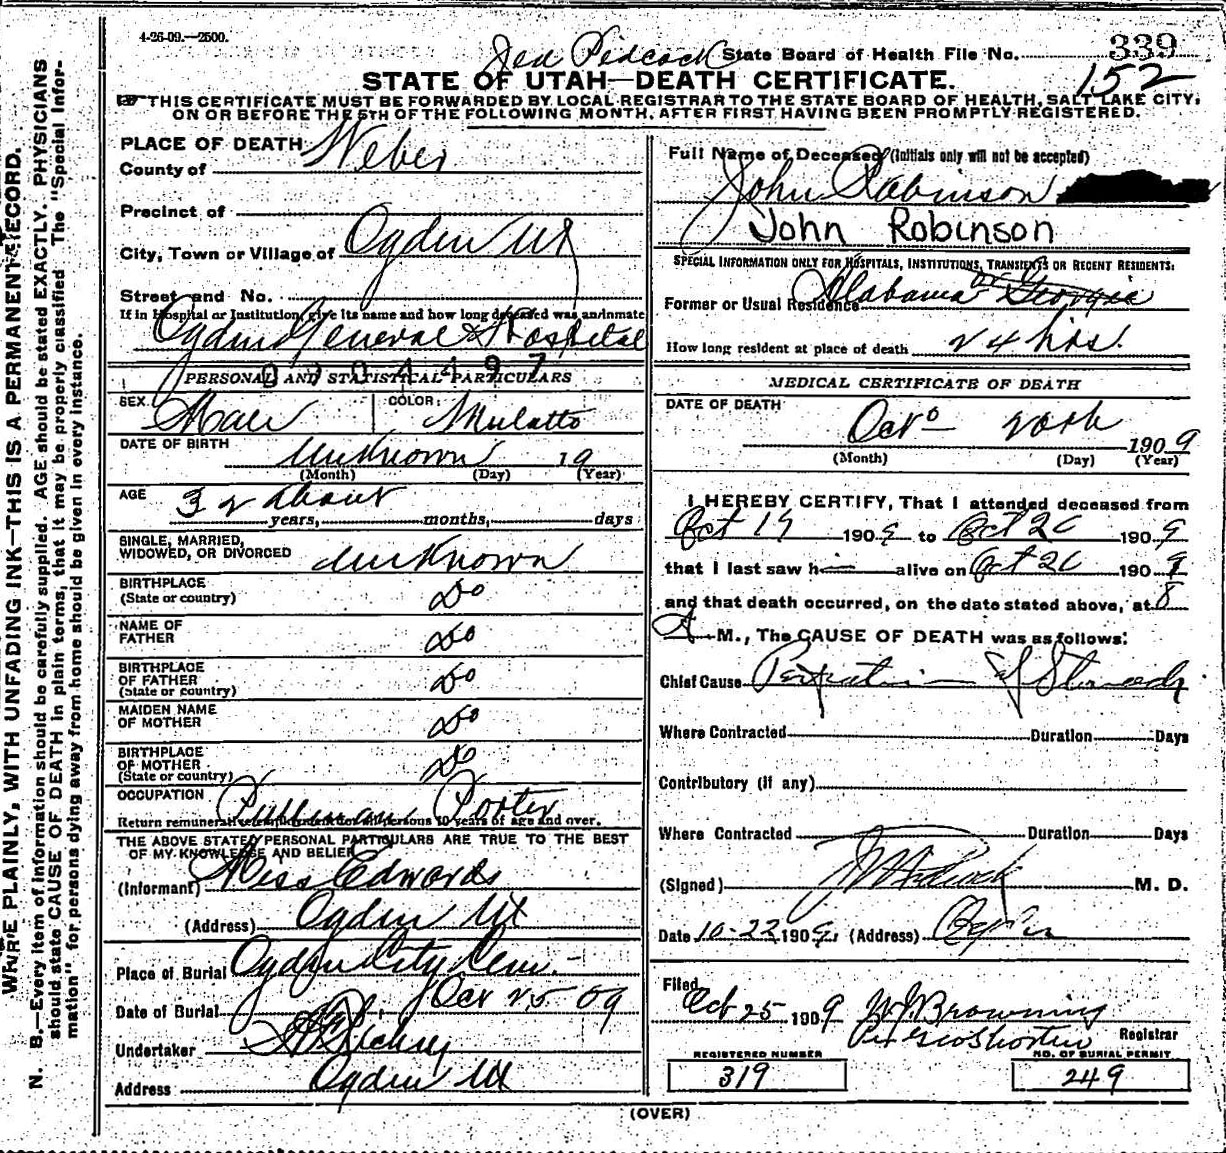 4-26-09.—2500.
Jed Pidcock State Board of Health File No. 339
STATE OF UTAH—DEATH CERTIFICATE. 152
THIS CERTIFICATE MUST BE FORWARDED BY LOCAL REGISTRAR TO THE STATE BOARD OF HEALTH, SALT LAKE CITY,
ON OR BEFORE THE 5TH OF THE FOLLOWING MONTH, AFTER FIRST HAVING BEEN PROMPTLY REGISTERED.
WRITE PLAINLY, WITH UNFADING INK—THIS IS A PERMANENT RECORD.
N. B.—Every item of information should be carefully supplied. AGE should be stated EXACTLY. PHYSICIANS
should state CAUSE OF DEATH in plain terms, that it may be properly classified. The "Special Infor-
mation" for persons dying away from home should be given in every instance.
PLACE OF DEATH
County of Weber
Precinct of
City, Town or Village of Ogden Ut
Street and No.
If in Hospital or Institution, give its name and how long deceased was an inmate
Ogden General Hospital
PERSONAL AND STATISTICAL PARTICULARS
SEX. Male COLOR: Mulatto
DATE OF BIRTH Unknown 19
(Month) (Day) (Year)
AGE 32 about
years, months, days
SINGLE, MARRIED,
WIDOWED, OR DIVORCED Unknown
BIRTHPLACE
(State or country) Do
NAME OF
FATHER Do
BIRTHPLACE
OF FATHER
(State or country) Do
MAIDEN NAME
OF MOTHER Do
BIRTHPLACE
OF MOTHER
(State or country) Do
OCCUPATION Pullman Porter
Return remunerative employment for all persons 10 years of age and over.
THE ABOVE STATED PERSONAL PARTICULARS ARE TRUE TO THE BEST
OF MY KNOWLEDGE AND BELIEF
(Informant) Miss Edwards
(Address) Ogden Ut
Place of Burial Ogden City Cem.
Date of Burial Oct 25 09
Undertaker
Address Ogden Ut
Full Name of Deceased (Initials only will not be accepted)
John Robinson
John Robinson
SPECIAL INFORMATION ONLY FOR HOSPITALS, INSTITUTIONS, TRANSIENTS OR RECENT RESIDENTS:
Former or Usual Residence Alabama or Georgia
How long resident at place of death 24 hrs.
MEDICAL CERTIFICATE OF DEATH
DATE OF DEATH
Oct 20th 1909
(Month) (Day) (Year)
I HEREBY CERTIFY, That I attended deceased from
Oct 19 1909 to Oct 20 1909
that I last saw h alive on Oct 20 1909
and that death occurred, on the date stated above, at 8
A M., The CAUSE OF DEATH was as follows:
Chief Cause Perforation of Stomach
Where Contracted Duration Days
Contributory (if any)
Where Contracted Duration Days
(Signed) Pidcock M. D.
Date 10-22 1909. (Address)
Filed Oct 25 1909 W J Browning
Per Geo Shorten Registrar
REGISTERED NUMBER NO. OF BURIAL PERMIT
319 249
(OVER)